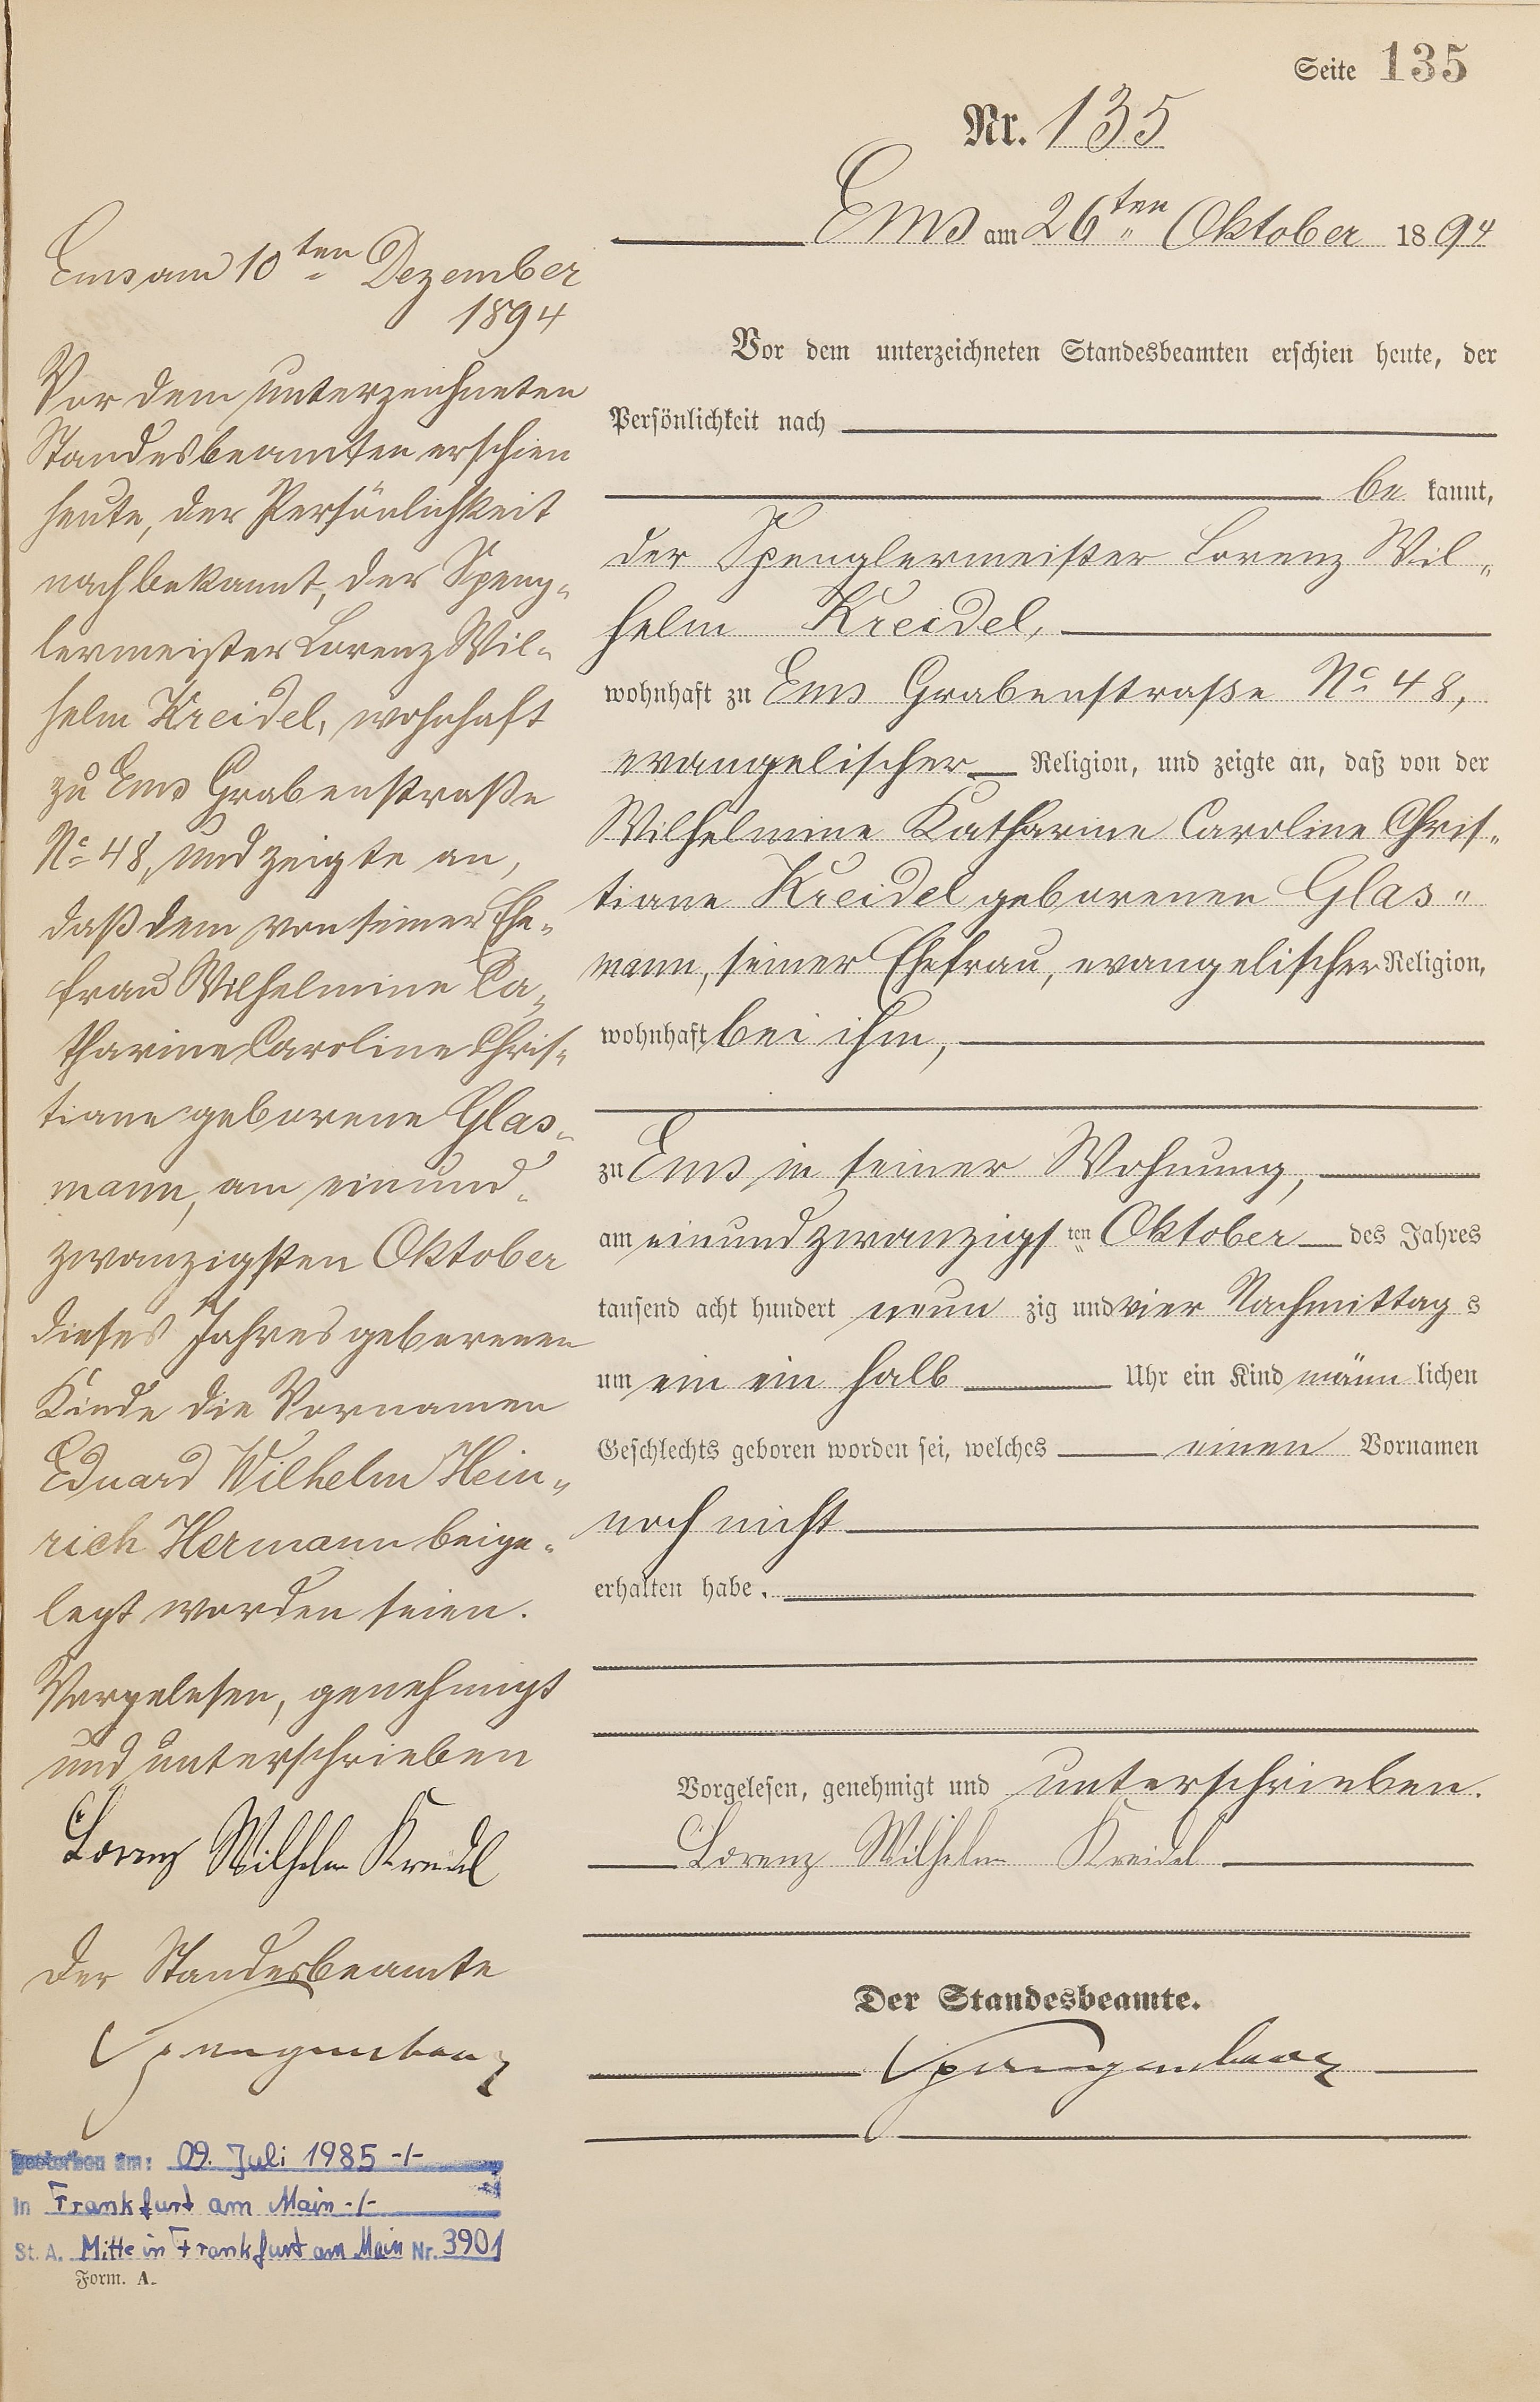 Seite 135
Nr. 135
Ems am 26ten Oktober 1894
Vor dem unterzeichneten Standesbeamten erschien heute, der
Persönlichkeit nach
be kannt,
der Spenglermeister Lorenz Wil„
helm Kreidel,
wohnhaft zu Ems Grabenstraße No 48,
evangelischer Religion, und zeigte an, daß von der
Wilhelmine Katharine Caroline Chris„
tiane Kreidel geborenen Glas„
mann, seiner Ehefrau, evangelischer Religion,
wohnhaft bei ihm,
zu Ems in seiner Wohnung,
am einundzwanzigsten Oktober des Jahres
tausend acht hundert neun zig und vier Nachmittag s
um ein ein halb Uhr ein Kind männ lichen
Geschlechts geboren worden sei, welches einen Vornamen
noch nicht
erhalten habe.
Vorgelesen, genehmigt und unterschrieben.
Lorenz Wilhelm Kreidel
Der Standesbeamte.
Ems am 10ten Dezember
1894
Vor dem unterzeichneten
Standesbeamten erschien
heute, der Persönlichkeit
nach bekannt, der Speng„
lermeister Lorenz Wil„
helm Kreidel, wohnhaft
zu Ems Grabenstraße
No 48, und zeigte an,
daß dem von seiner Ehe„
frau Wilhelmine Ca„
tharine Caroline Chris„
tiane geborene Glas„
mann, am einund„
zwanzigsten Oktober
dieses Jahres geborenen
Kinde die Vornamen
Eduard Wilhelm Hein„
rich Hermann beige„
legt worden seien.
Vorgelesen, genehmigt
und unterschrieben
Lorenz Wilhelm Kreidel
Der Standesbeamte
gestorben am: 09. Juli 1985 -/-
in Frankfurt am Main -/-
St. A. Mitte in Frankfurt am Main Nr. 3901
Form. A.